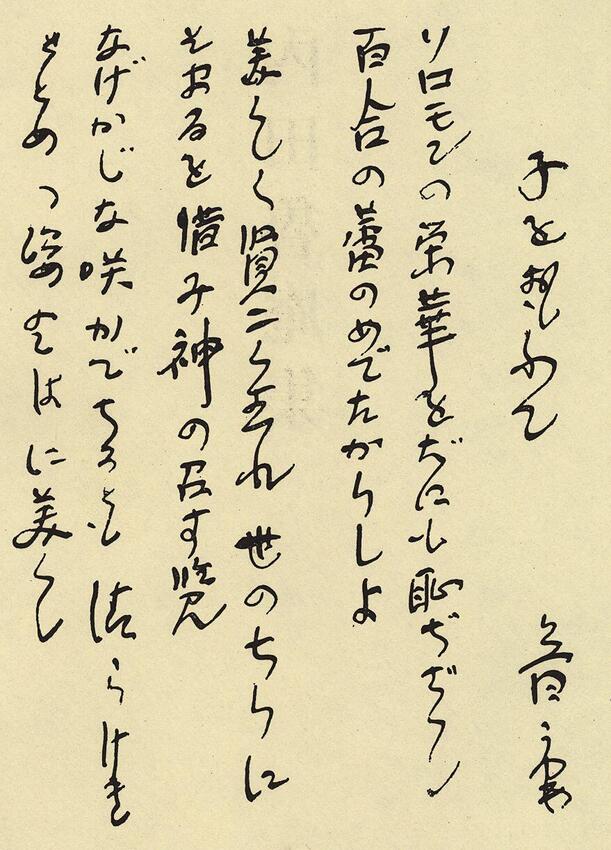 子をおもふて
ソロモンの栄華をだにも恥ぢざらん
百合の蕾のめでたかりしよ
美しく賢こく生れ世のちりに
そまるを惜み神の召す覧
なげかじな咲かでちるとも清らけき
をとめの姿とはに美くし